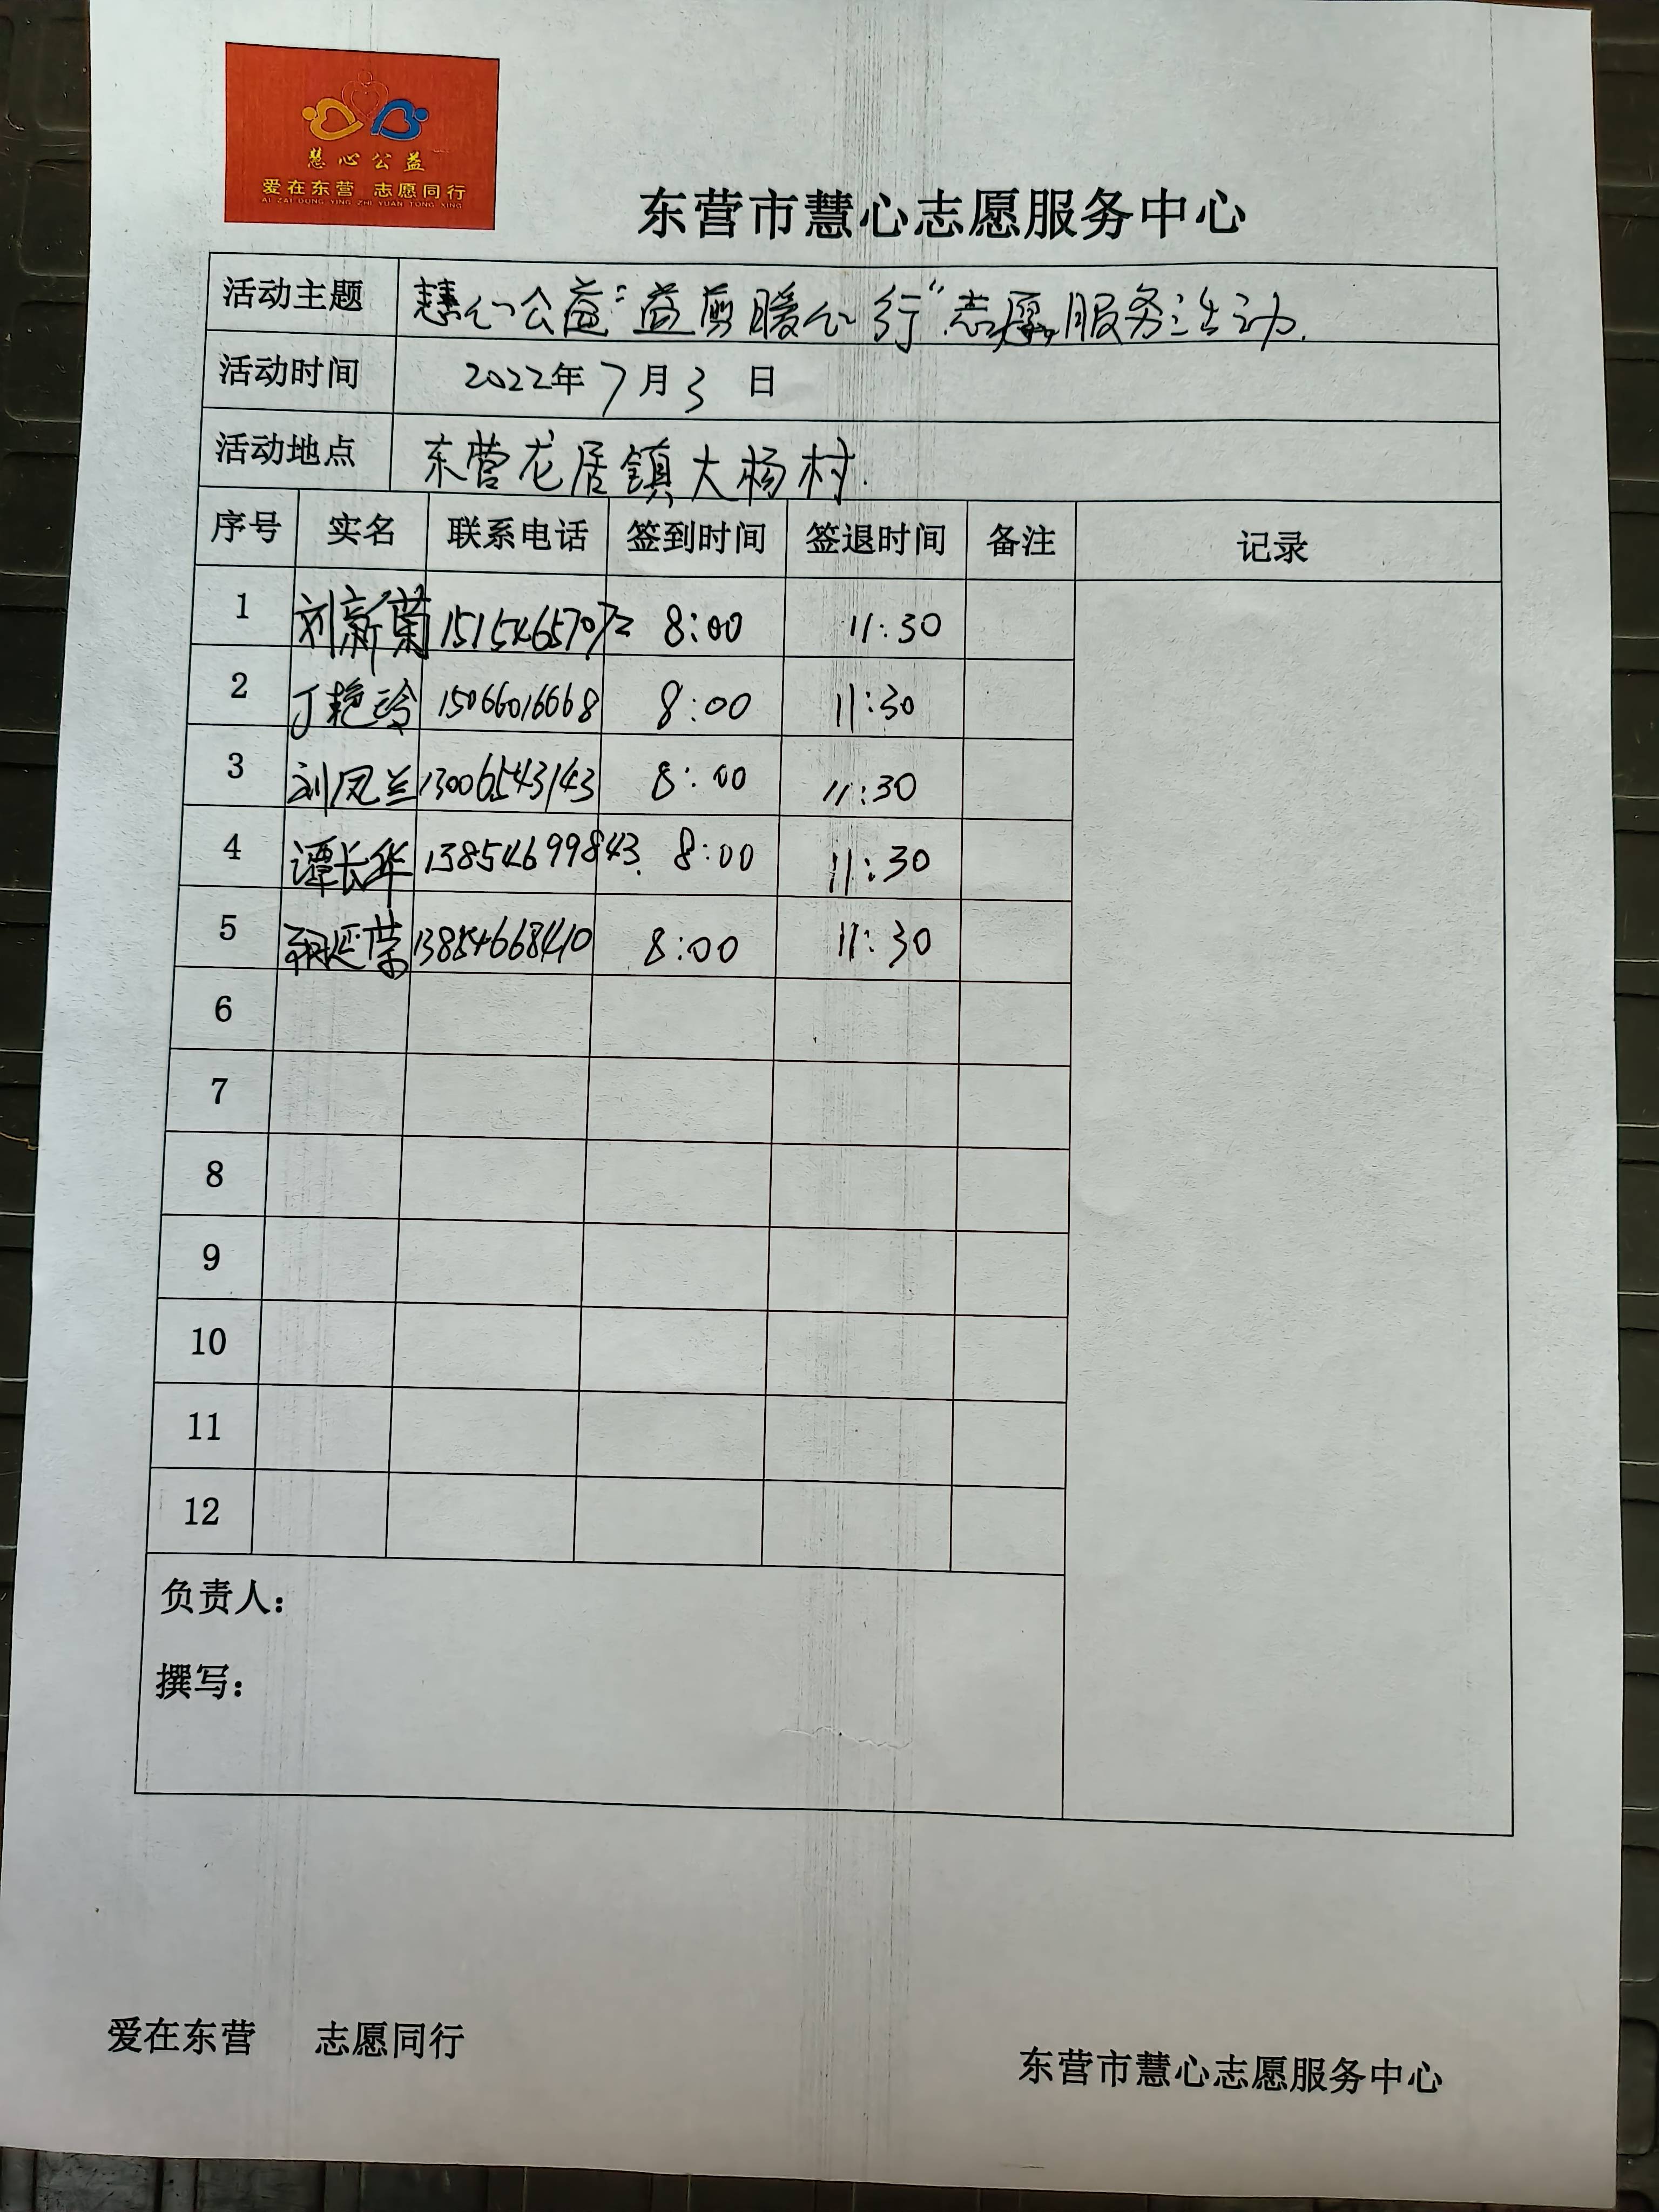 慧心公益
爱在东营 志愿同行
AI ZAI DONG YING ZHI YUAN TONG XING
东营市慧心志愿服务中心
活动主题 慧心公益“益剪暖心行”志愿服务活动.
活动时间 2022年7月3日
活动地点 东营龙居镇大杨村.
序号 实名 联系电话 签到时间 签退时间 备注 记录
1 刘新菊 15154657072 8:00 11:30
2 丁艳玲 15066016668 8:00 11:30
3 刘凤兰 13006543143 8:00 11:30
4 谭长华 13854699843. 8:00 11:30
5 延荣 13854668410 8:00 11:30
6
7
8
9
10
11
12
负责人：
撰写：
爱在东营 志愿同行
东营市慧心志愿服务中心